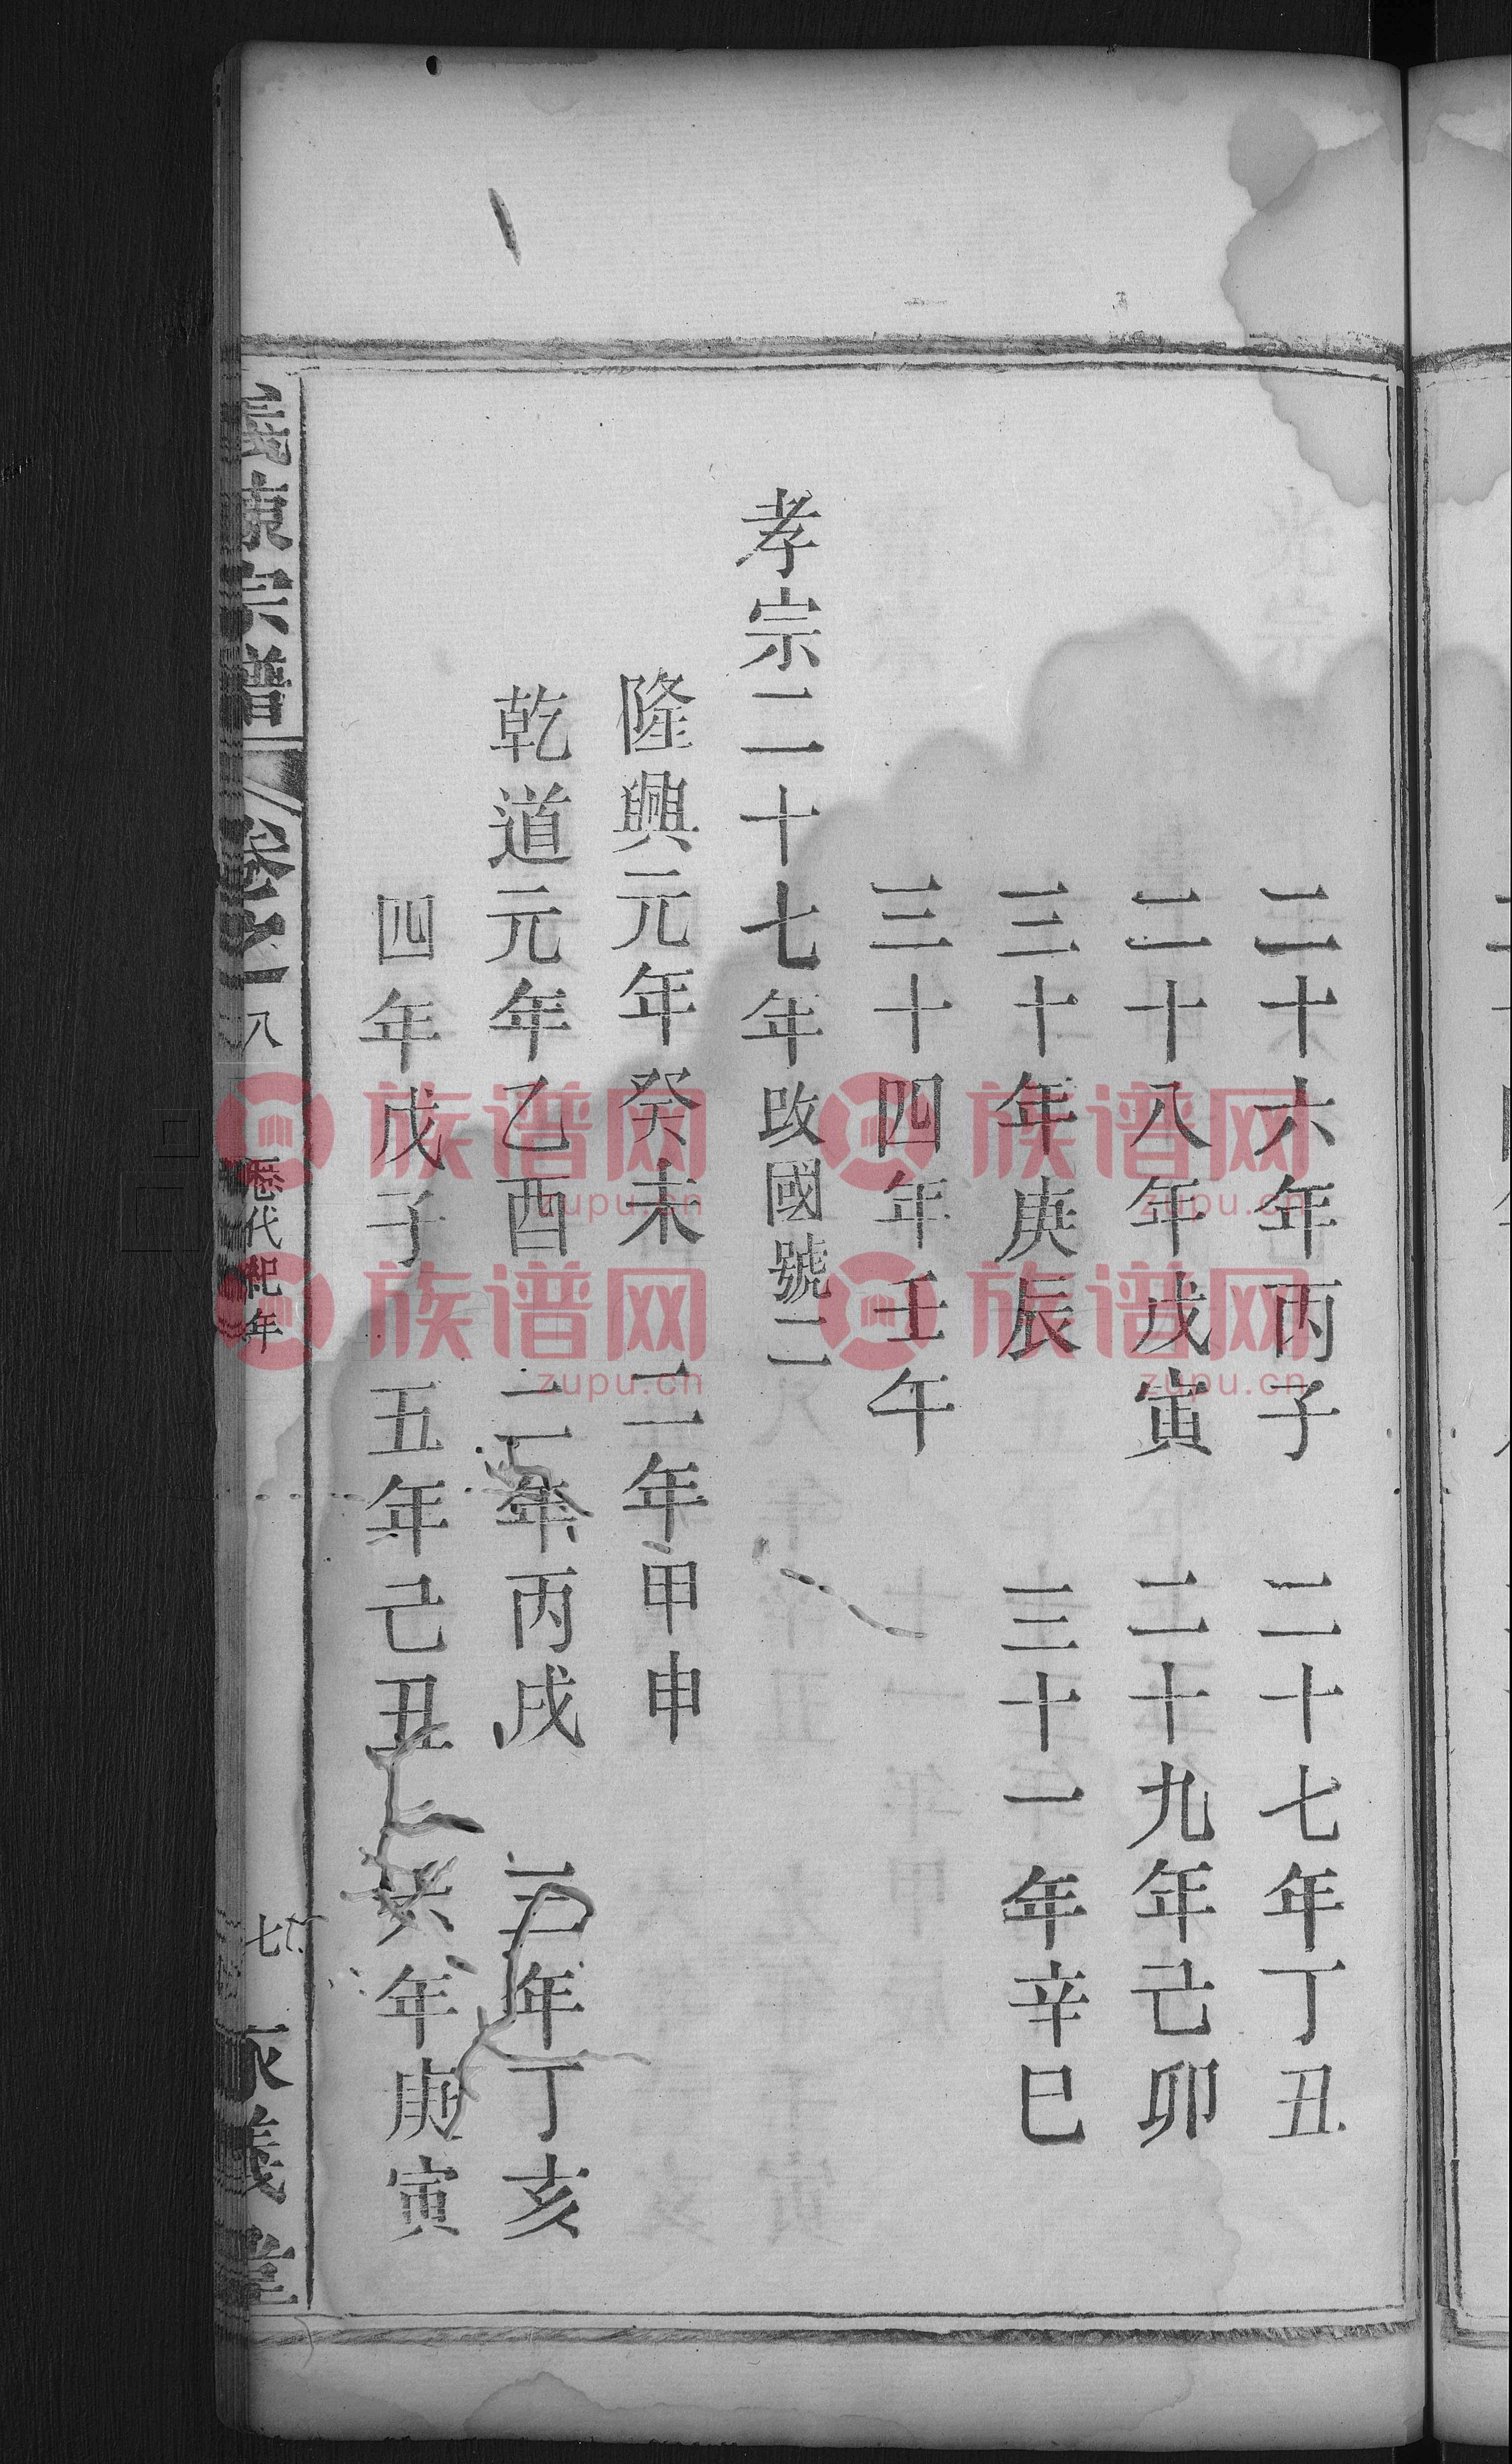 二十六年丙子　二十七年丁丑
二十八年戊寅　二十九年己卯
三十年庚辰　三十一年辛巳
三十四年壬午
孝宗二十七年改國號二
隆興元年癸未　二年甲申
乾道元年乙酉　二年丙戌　三年丁亥
四年戊子　五年己丑　六年庚寅
陳宗譜
卷八
歷代紀年
七
義堂
族谱网
zupu.cn
族谱网
zupu.cn
族谱网
zupu.cn
族谱网
zupu.cn